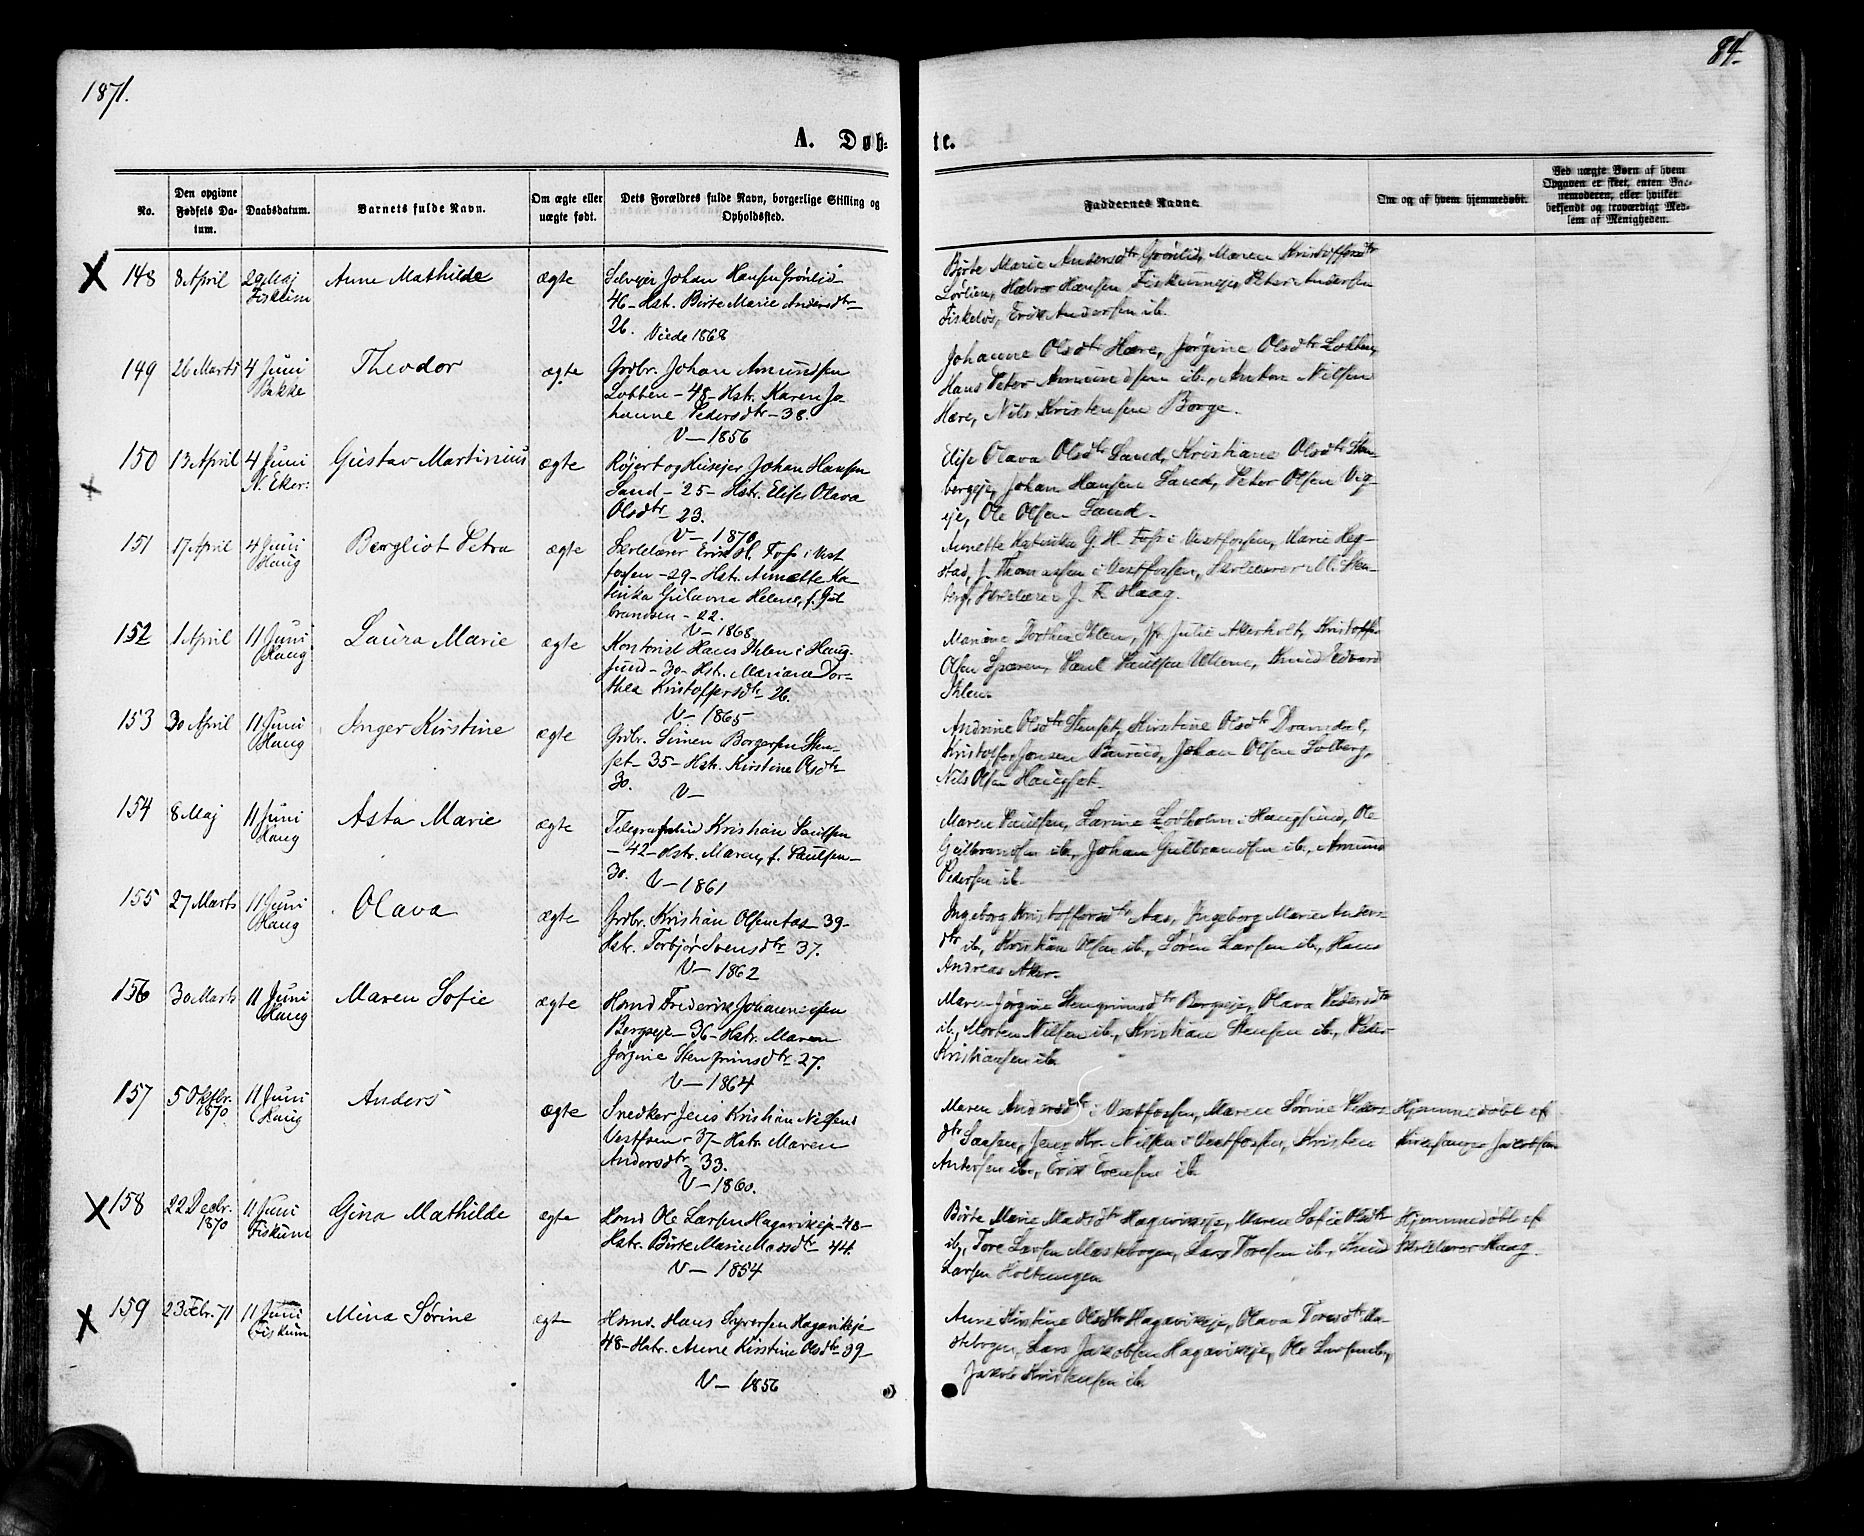 1871.
84.
A. Døb-
te.
No.
Den opgivne Fødsels Datum.
Daabsdatum.
Barnets fulde Navn.
Om ægte eller uægte født.
Dets Forældres fulde Navn, borgerlige Stilling og Opholdssted.
Faddernes Navne.
Om og af hvem hjemmedøbt.
Ved uægte Børn af hvem Opgaven er skeet, enten Barnemoderen, eller hvilket bekjendt og troværdigt Medlem af Menigheden.
X 148 8 April 29 Maj Fiskum Anne Mathilde ægte
Selvejer Johan Hansen Grønlid
46 - Hstr. Birte Marie Andersdtr
26. Viede 1868
Birte Marie Andersdtr Grønlid, Maren Kristoffersdtr
Lørlien, Halvor Hansen Fiskumeje, Peter Andersen
Fiskeløs, Erik Andersen ib.
149 26 Marts 4 Juni Bakke Theodor ægte
Grdbr. Johan Amundsen
Lobben - 48 - Hstr. Karen Jo-
hanne Pedersdtr - 38.
V - 1856
Johanne Olsdtr Hære, Jørgine Olsdtr Lobben,
Hans Peter Amundsen ib., Anton Nilsen
Hære, Nils Kristensen Borge.
150 13 April 4 Juni N. Eker: Gustav Martinius ægte
Røjert og Husejer Johan Hansen
Sand - 25 - Hstr. Elise Olava
Olsdtr 23.
V - 1870
Elise Olava Olsdtr Sand, Kristiane Olsdtr Sten-
bergeje, Johan Hansen Sand, Peter Olsen Vig-
eje, Ole Olsen Sand.
151 17 April 4 Juni Haug Bergliot Petra ægte
Skolelærer Erik H. Foss i Vest
fossen - 29 - Hstr. Annette Ka-
trika Gulavna Helene, f. Gul
brandsen - 22.
V - 1868
Annette Katinka G. H. Foss i Vestfossen, Marie Reg-
stad, J. Thomassen i Vestfossen, Skolelærer M. Sten-
berg, Skolelærer J. K. Haag.
152 1 April 11 Juni Haug Laura Marie ægte
Kontorist Hans Ihlen i Haug-
sund - 30 - Hstr. Mariane Dor-
thea Kristoffersdtr 26.
V - 1865
Mariane Dorthea Ihlen, Jfr Julie Akerholt, Kristoffer
Olsen Sparen, Paul Paulsen Ullern, Knud Edvard
Ihlen.
153 30 April 11 Juni Haug Inger Kirstine ægte
Grdbr. Simen Borgersen Sten-
set - 35 - Hstr. Kirstine Olsdtr
30. V -
Andrine Olsdtr Stenset, Kirstine Olsdtr Dramdal,
Kristoffer Jonsen Baurud, Johan Olsen Solberg,
Nils Olsen Haugset.
154 8 Maj 11 Juni Haug Asta Marie ægte
Telegrafbud Kristian Paulsen
- 42 - Hstr. Maren, f. Paulsen -
30. V - 1861
Maren Paulsen, Larine Løvholm i Haugsund, Ole
Gulbrandsen ib., Johan Gulbrandsen ib., Amund
Pedersen ib.
155 27 Marts 11 Juni Haug Olava ægte
Grdbr. Kristian Olsen Aas 39 -
Hstr. Torbjør Svensdtr 37.
V - 1862
Ingeborg Kristoffersdtr Aas, Ingeborg Marie Anders-
dtr ib., Kristian Olsen ib., Søren Larsen ib., Hans
Andreas Aker.
156 30 Marts 11 Juni Haug Maren Sofie ægte
Hsmd Frederik Johannessen
Bergseje - 36 - Hstr. Maren
Jørgine Stengrimsdtr 27.
V - 1864
Maren Jørgine Stengrimsdtr Bergseje, Olava Pedersdtr
ib., Morten Nilsen ib., Kristian Stensen ib., Peder
Kristiansen ib.
157 5 Oktbr. 1870 11 Juni Haug Anders ægte
Snedker Jens Kristian Nilsen i
Vestfossen - 37 - Hstr. Maren
Andersdtr 33.
V - 1860.
Maren Andersdtr i Vestfossen, Maren Sørine Peders
dtr Saasen, Jens Kr. Nilsen i Vestfossen, Kristen
Andersen ib., Erik Evensen ib.
Hjemmedøbt af
Kirkesanger Jakobsen
X 158 22 Decbr. 1870 11 Juni Fiskum Gina Mathilde ægte
Hsmd Ole Larsen Hagavikeje - 48 -
Hstr. Birte Marie Madsdtr 44.
V - 1854
Birte Marie Madsdtr Hagavikeje, Maren Sofie Olsdtr
ib., Tore Larsen Mastebogen, Lars Toresen ib., Knud
Larsen Holtungen
Hjemmedøbt af
Skolelærer Haag.
X 159 23 Febr. 71 11 Juni Fiskum Mina Sørine ægte
Hsmd. Hans Syversen Hagavikeje
48 - Hstr. Anne Kirstine Olsdtr 39 -
V - 1856
Anne Kirstine Olsdtr Hagavikeje, Olava Toresdtr Ma-
stebogen, Lars Jakobsen Hagavikeje, Ole Larsen ib.,
Jakob Kristensen ib.